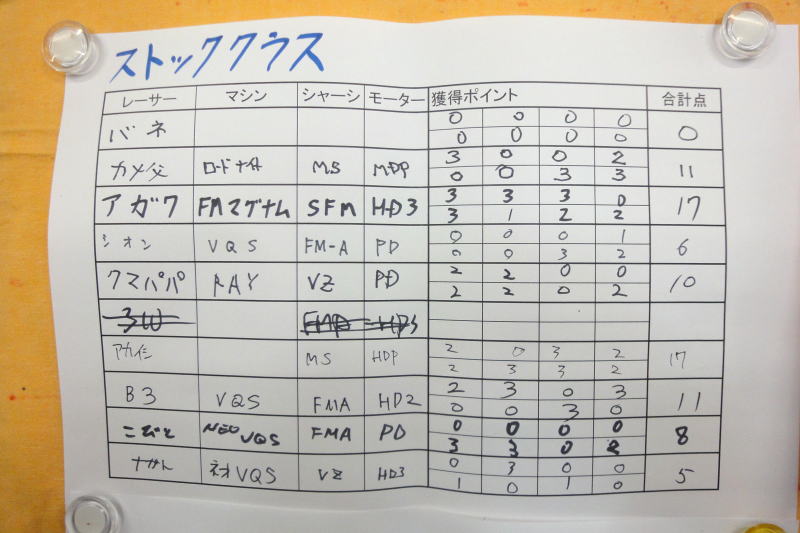 ストッククラス
レーサー マシン シャーシ モーター 獲得ポイント 合計点
バネ 0 0 0 0 0
0 0 0 0
カメ父 ロードナイト MS MDP 3 0 0 2 11
0 0 3 3
アガワ FMマグナム SFM HD3 3 3 3 0 17
3 1 2 2
シオン VQS FM-A PD 0 0 0 1 6
0 0 3 2
クマパパ RAY VZ PD 2 2 0 0 10
2 2 0 2
アカイシ MS HDP 2 0 3 2 17
2 3 3 2
B3 VQS FMA HD2 2 3 0 3 11
0 0 3 0
こびと NEO VQS FMA PD 0 0 0 0 8
3 3 0 2
ネオVQS VZ HD3 0 3 0 0 5
1 0 1 0